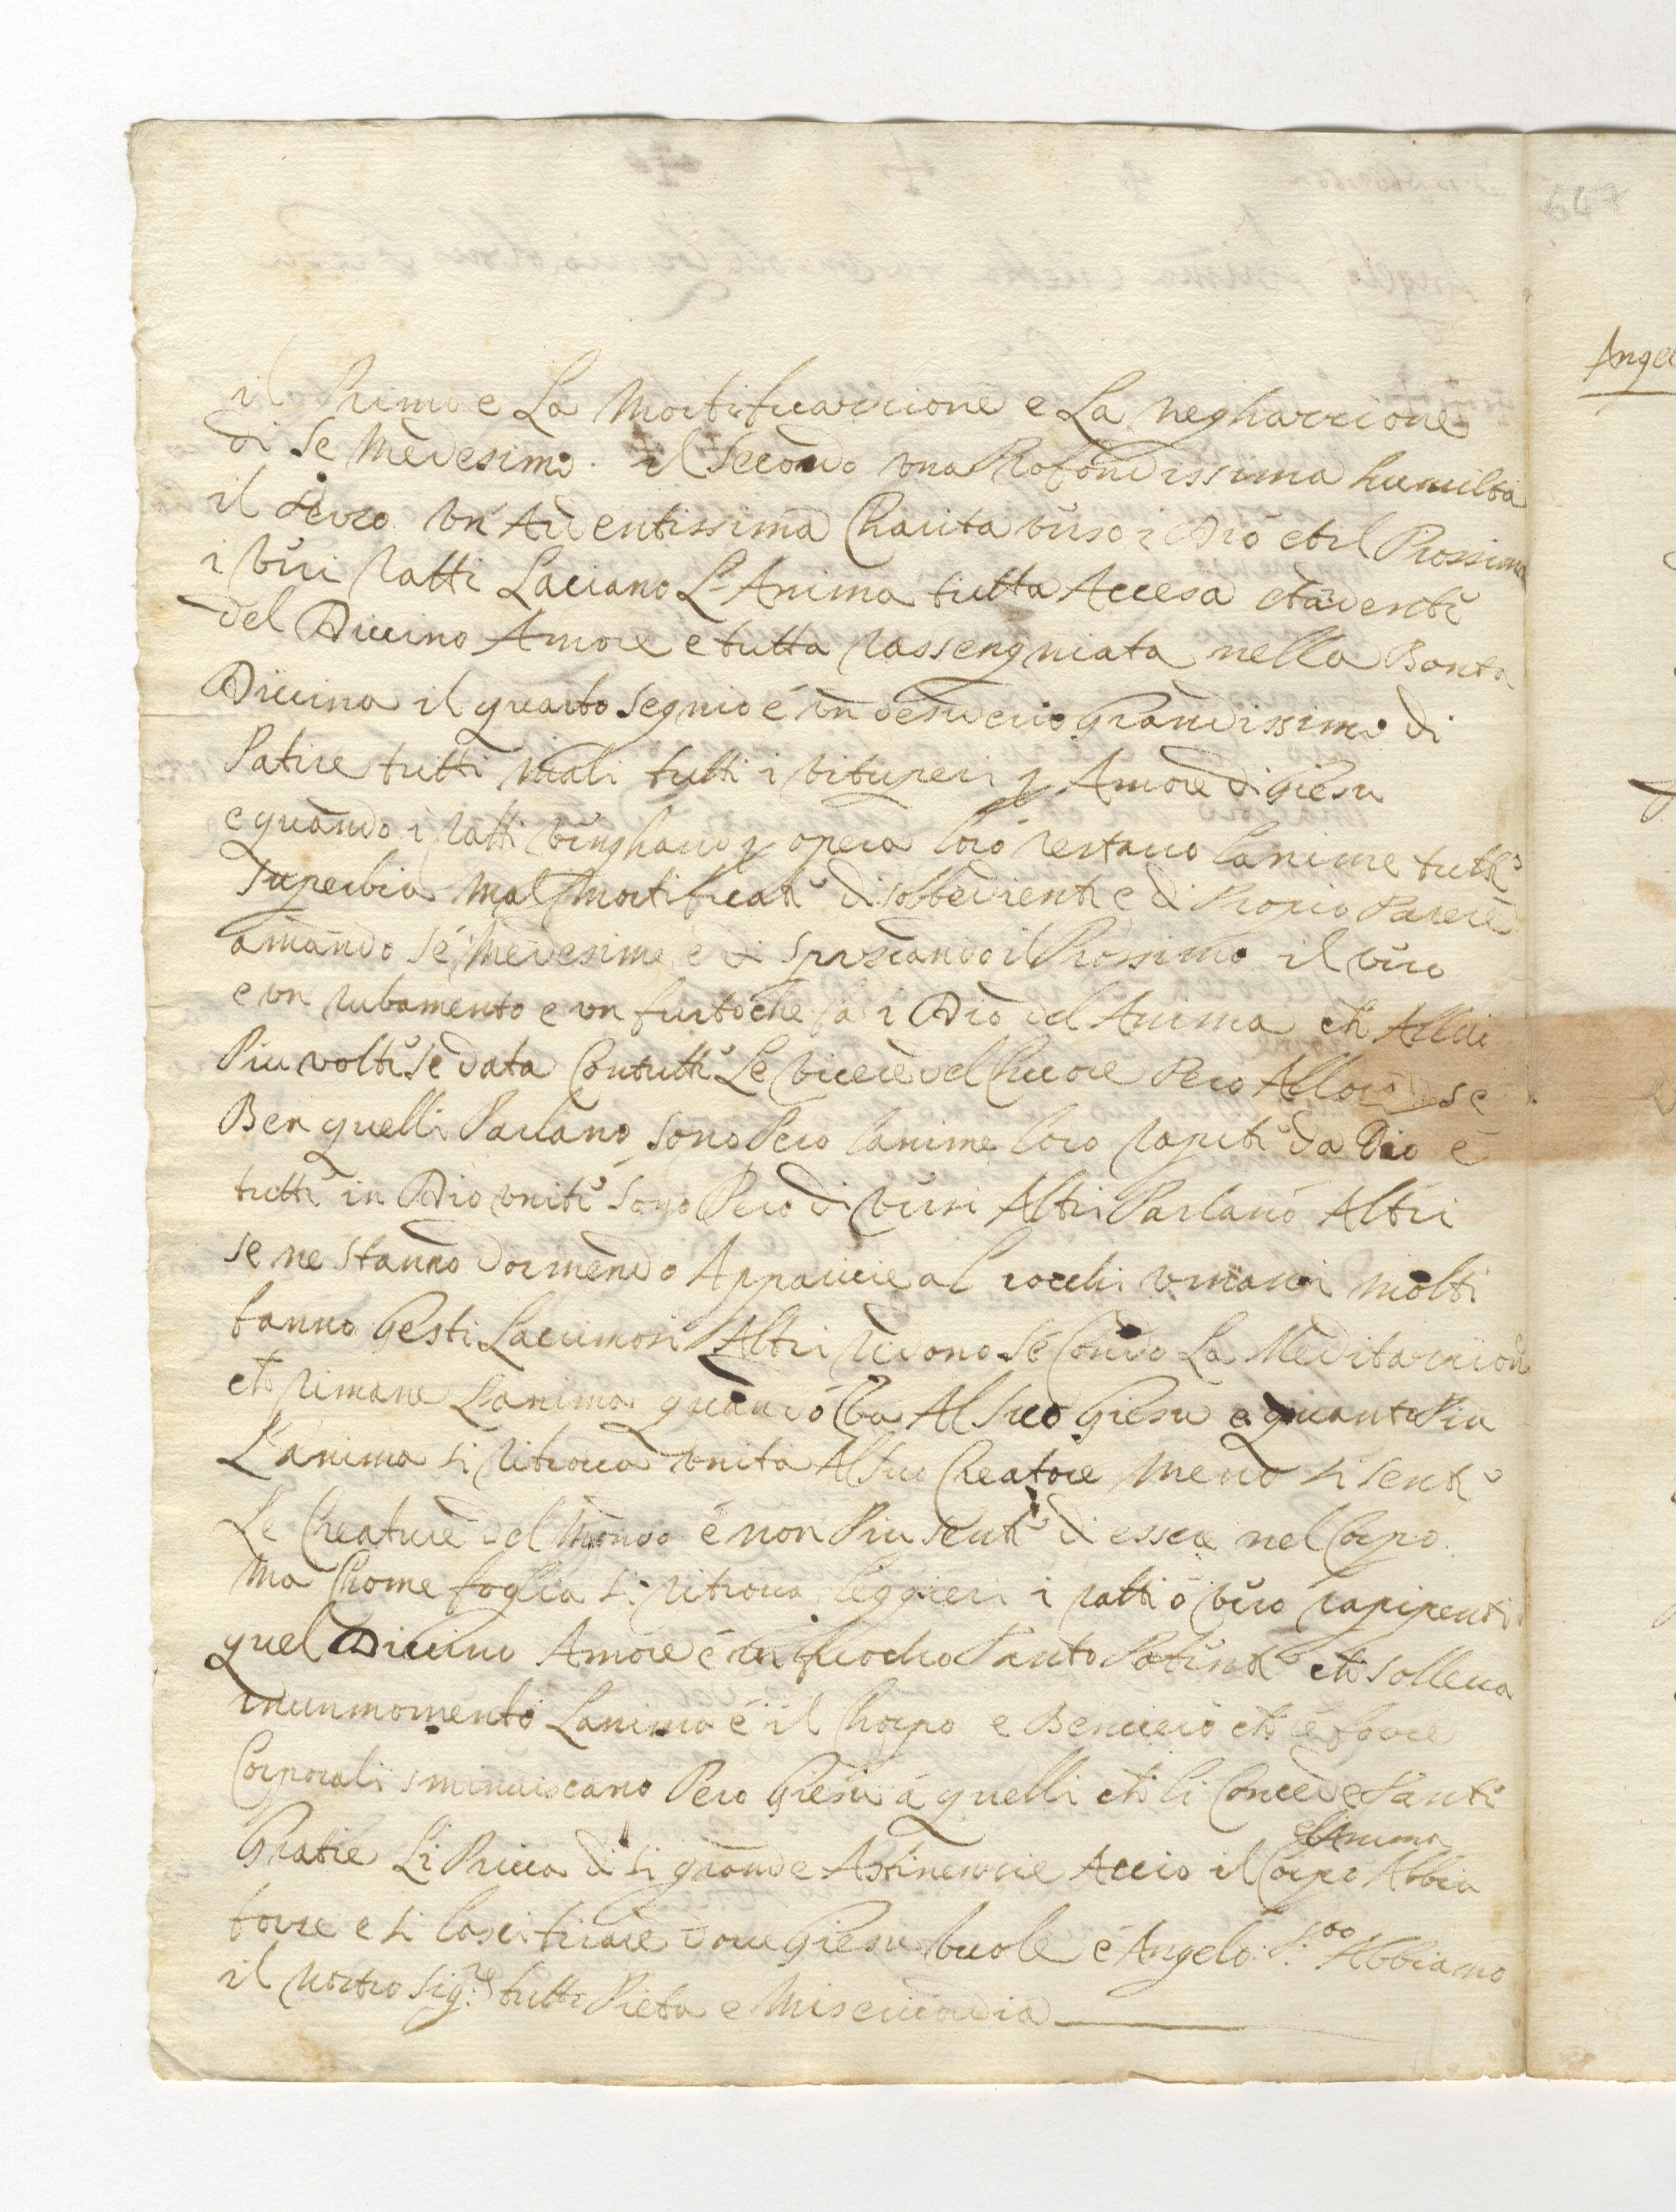 il Primo e La Mortifucarcione e La negharcione
di se Medesimo. il Secondo una Profondissima humilta
il Terzo un Ardentissima Charita verso i Dio et il Prossimo
i veri Ratti Laciano L'Anima tutta Accesa et ardente
del Divino Amore e tutta Rassengniata nella Bonta
Divina il quarto segnio é un desiderio Grandissimo di
Patire tutti mali tutti i vituperi p Amore di Giesu
e quando i Ratti venghano p opera loro restano lanime tutte
superbia Mal mortificate disobbedienti e di Propio Parere
amando sé Medesime e di sprezando il Prossimo il vero
e un rubamento e un furto che fa i Dio del Anima che Allui
Piu volte se data Con tutte Le vicere del Chuore Pero Alloro se
Ben quelli Parlano sono Pero lanime loro rapite da Dio e
tutte in Dio unite sono Pero diversi Altri Parlano Altri
se ne stanno dormendo Appaicie al rocchi umani molti
fanno Gesti Lacrimosi Altri Ridono se Condo La Meditarcione
che rimane Lanima quando va Al suo Giesu e quanto Piu
L'anima si ritrova unita Al suo Creatore meno si sente
Le Creature del Mondo é non Piu sente di essere nel Corpo
Ma Chome foglia si ritrova leggieri i ratti ó vero rapipenti
quel Divino Amore é un fuocho Tanto Potente che solleva
in un momento Lanima é il Chorpo e Benvero che le force
Corporali sminuiscano Pero Giesu a quelli che li Concede Tante
Gratie Li Priva di si grande Astinencie Accio il Corpo e l'Anima Abbia
force e si lasci tirare dove Giesu vuole é Angelo: S.to Abbiamo
il nostro Sig.re tutto Pieta e Misericordia
647
Ange